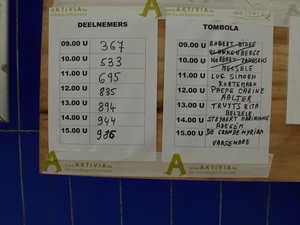 AKTIVIA.be
AKTIVIA.be
DEELNEMERS
09.00 U 367
10.00 U 533
11.00 U 695
12.00 U 835
13.00 U 894
14.00 U 944
15.00 U 986
AKTIVIA.be
TOMBOLA
09.00 U ROBERT
10.00 U NORBERT
11.00 U LUC SIMOEN
KORTEMARK
12.00 U PREPE CARINE
AALTER
13.00 U TRUYTS RITA
BELZELE
14.00 U STEYAERT MARIANNE
ADEGEM
15.00 U DE CRAMER MYRIAN
VARSENARE
AKTIVIA.be